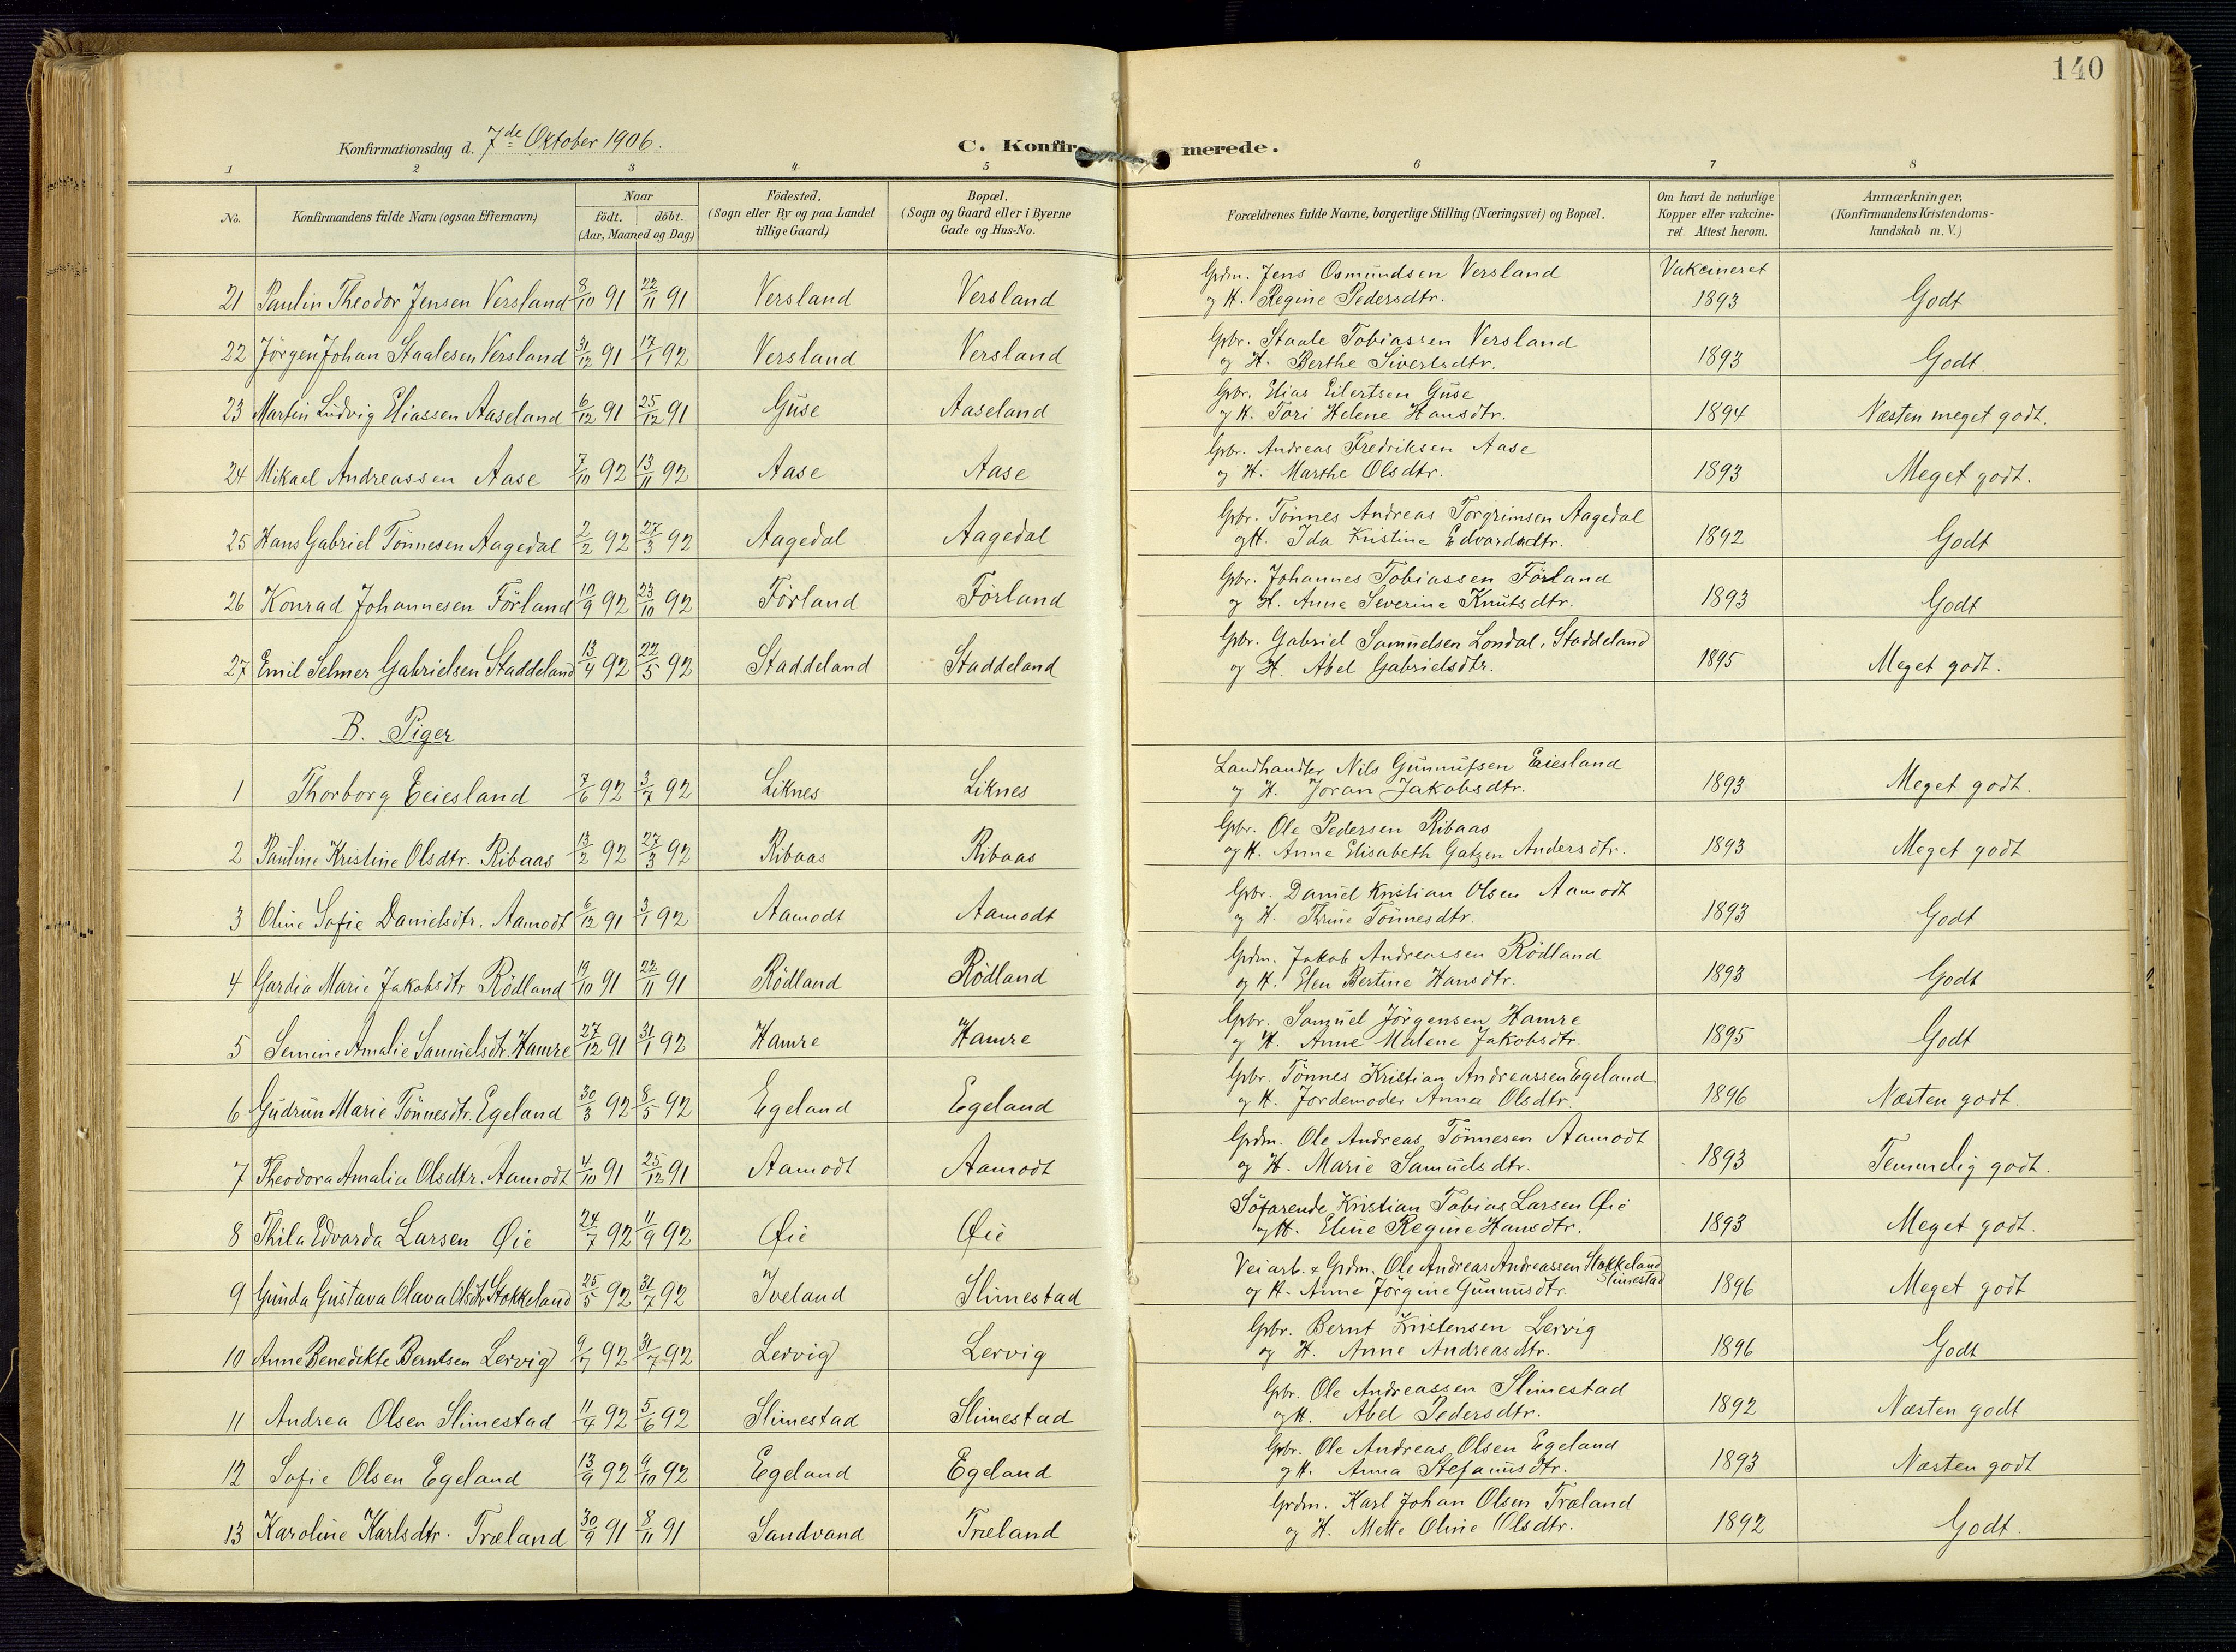 140
Konfirmationsdag d. 7de Oktober 1906.
C. Konfir- merede.
1 2 3 4 5 6 7 8
No.
Konfirmandens fulde Navn (ogsaa Efternavn)
Naar
født. døbt.
(Aar, Maaned og Dag)
Fødested.
(Sogn eller By og paa Landet
tillige Gaard)
Bopæl.
(Sogn og Gaard eller i Byerne
Gade og Hus-No.
Forældrenes fulde Navne, borgerlige Stilling (Næringsvei) og Bopæl.
Om havt de naturlige
Kopper eller vakcine-
ret. Attest herom.
Anmærkninger,
(Konfirmandens Kristendoms-
kundskab m. V.)
Gdm. Jens Osmundsen Versland Vakcineret
21 Paulin Theodor Jensen Versland 8/10 91 22/11 91 Versland Versland og H. Regine Pedersdtr. 1893 Godt
Gbr. Staale Tobiassen Versland
22 Jörgen Johan Staalesen Versland 31/12 91 17/1 92 Versland Versland og H. Berthe Sivertsdtr. 1893 Godt.
Gbr. Elias Eilertsen Guse
23 Martin Ludvig Eliassen Aaseland 6/12 91 25/12 91 Guse Aaseland og H. Tori Helene Hansdtr. 1894 Næsten meget godt.
Gbr. Andreas Fredriksen Aase
24 Mikael Andreassen Aase 7/10 92 13/11 92 Aase Aase og H. Marthe Olsdtr. 1893 Meget godt.
Gbr. Tönnes Andreas Torgrimsen Aagedal
25 Hans Gabriel Tönnesen Aagedal 2/2 92 27/3 92 Aagedal Aagedal og H. Ida Kristine Edvardsdtr. 1892 Godt
Gbr. Johannes Tobiassen Förland
26 Konrad Johannesen Förland 10/9 92 23/10 92 Förland Förland og H. Anne Severine Knutsdtr. 1893 Godt
Gbr. Gabriel Samuelsen Londal, Staddeland
27 Emil Selmer Gabrielsen Staddeland 13/4 92 22/5 92 Staddeland Staddeland og H. Abel Gabrielsdtr. 1895 Meget godt.
B. Piger
Landhandler Nils Gunnufsen Eiesland
1 Thorborg Eeiesland 7/6 92 3/7 92 Liknes Liknes og H. Joran Jakobsdtr. 1893 Meget godt.
Gbr. Ole Pedersen Ribaas
2 Pauline Kristine Olsdtr. Ribaas 13/2 92 27/3 92 Ribaas Ribaas og H. Anne Elisabeth Gatzen Andersdtr. 1893 Meget godt
Gbr. Daniel Kristian Olsen Aamodt
3 Oline Sofie Danielsdtr. Aamodt 6/12 91 3/1 92 Aamodt Aamodt og H. Thrine Tönnesdtr. 1893 Godt
Gdm. Jakob Andreassen Rödland
4 Gardia Marie Jakobsdtr Rödland 19/10 91 22/11 91 Rödland Rödland og H. Elen Bertine Hansdtr. 1893 Godt
Gbr. Samuel Jörgensen Hamre
5 Semine Amalie Samuelsdtr. Hamre 27/12 91 31/1 92 Hamre Hamre og H. Anne Malene Jakobsdtr. 1895 Godt
Gbr. Tönnes Kristian Andreassen Egeland
6 Gudrun Marie Tönnesdtr. Egeland 30/3 92 8/5 92 Egeland Egeland og H. Jordemoder Anna Olsdtr. 1896 Næsten godt.
Gdm. Ole Andreas Tönnesen Aamodt
7 Theodora Amalia Olsdtr. Aamodt 4/10 91 25/12 91 Aamodt Aamodt og H. Marie Samuelsdtr. 1893 Temmelig godt.
Söfarende Kristian Tobias Larsen Øie
8 Thila Edvarda Larsen Øie 24/7 92 11/9 92 Øie Øie og H. Eline Regine Hansdtr. 1893 Meget godt.
Veiarb. & Gdm. Ole Andreas Andreassen Stokkeland
Slimestad
9 Gunda Gustava Olava Olsdtr Stokkeland 25/5 92 31/7 92 Iveland Slimestad og H. Anne Jörgine Gunnusdtr. 1896 Meget godt
Gbr. Bernt Kristensen Lervig
10 Anne Benedikte Berntsen Lervig 9/7 92 31/7 92 Lervig Lervig og H. Anne Andreasdtr. 1896 Godt
Gbr. Ole Andreassen Slimestad
11 Andrea Olsen Slimestad 11/4 92 5/6 92 Slimestad Slimestad og H. Abel Pedersdtr. 1892 Næsten godt
Gbr. Ole Andreas Olsen Egeland
12 Sofie Olsen Egeland 13/9 92 9/10 92 Egeland Egeland og H. Anna Stefanusdtr. 1893 Næsten godt
Grdm. Karl Johan Olsen Træland
13 Karoline Karlsdtr. Træland 30/9 91 8/11 91 Sandvand Træland og H. Mette Oline Olsdtr. 1892 Godt.